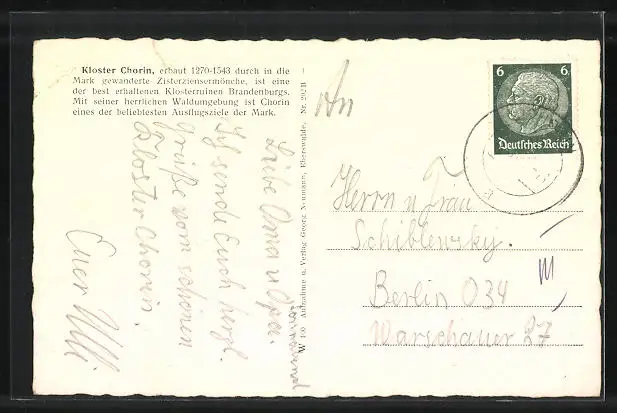 Kloster Chorin, erbaut 1270-1543 durch in die
Mark gewanderte Zisterziensermönche, ist eine
der best erhaltenen Klosterruinen Brandenburgs.
Mit seiner herrlichen Waldumgebung ist Chorin
eines der beliebtesten Ausflugsziele der Mark.
Liebe Oma u Opa.
Ich sende Euch herzl.
Grüße vom schönen
Kloster Chorin.
Euer Ulli
W 100 Aufnahme u. Verlag Georg Neumann, Eberswalde. Nr.
6 6
Deutsches Reich
An
Herrn u Frau
Schiblewsky.
Berlin O34
Warschauer 27